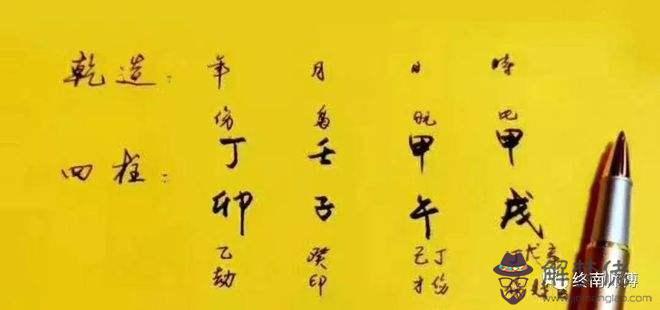 乾造： 年 月 日 時
伤 枭 比
四柱： 丁 壬 甲 甲
卯 子 午 戌
乙 癸 己丁 戊
劫 印 才伤
终南师傅